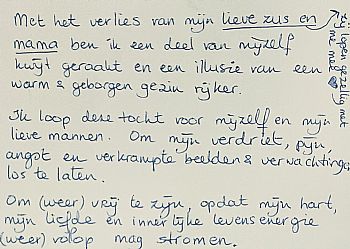 Met het verlies van mijn lieve zus en
mama ben ik een deel van mijzelf
kwijt geraakt en een illusie van een
warm & geborgen gezin rijker.
Ik loop deze tocht voor mijzelf en mijn
lieve mannen. Om mijn verdriet, pijn,
angst en verkrampte beelden & verwachtingen
los te laten.
Om (weer) vrij te zijn, opdat mijn hart,
mijn liefde en innerlijke levensenergie
(weer) volop mag stromen.
Zij lopen gezellig met
me mee ♥